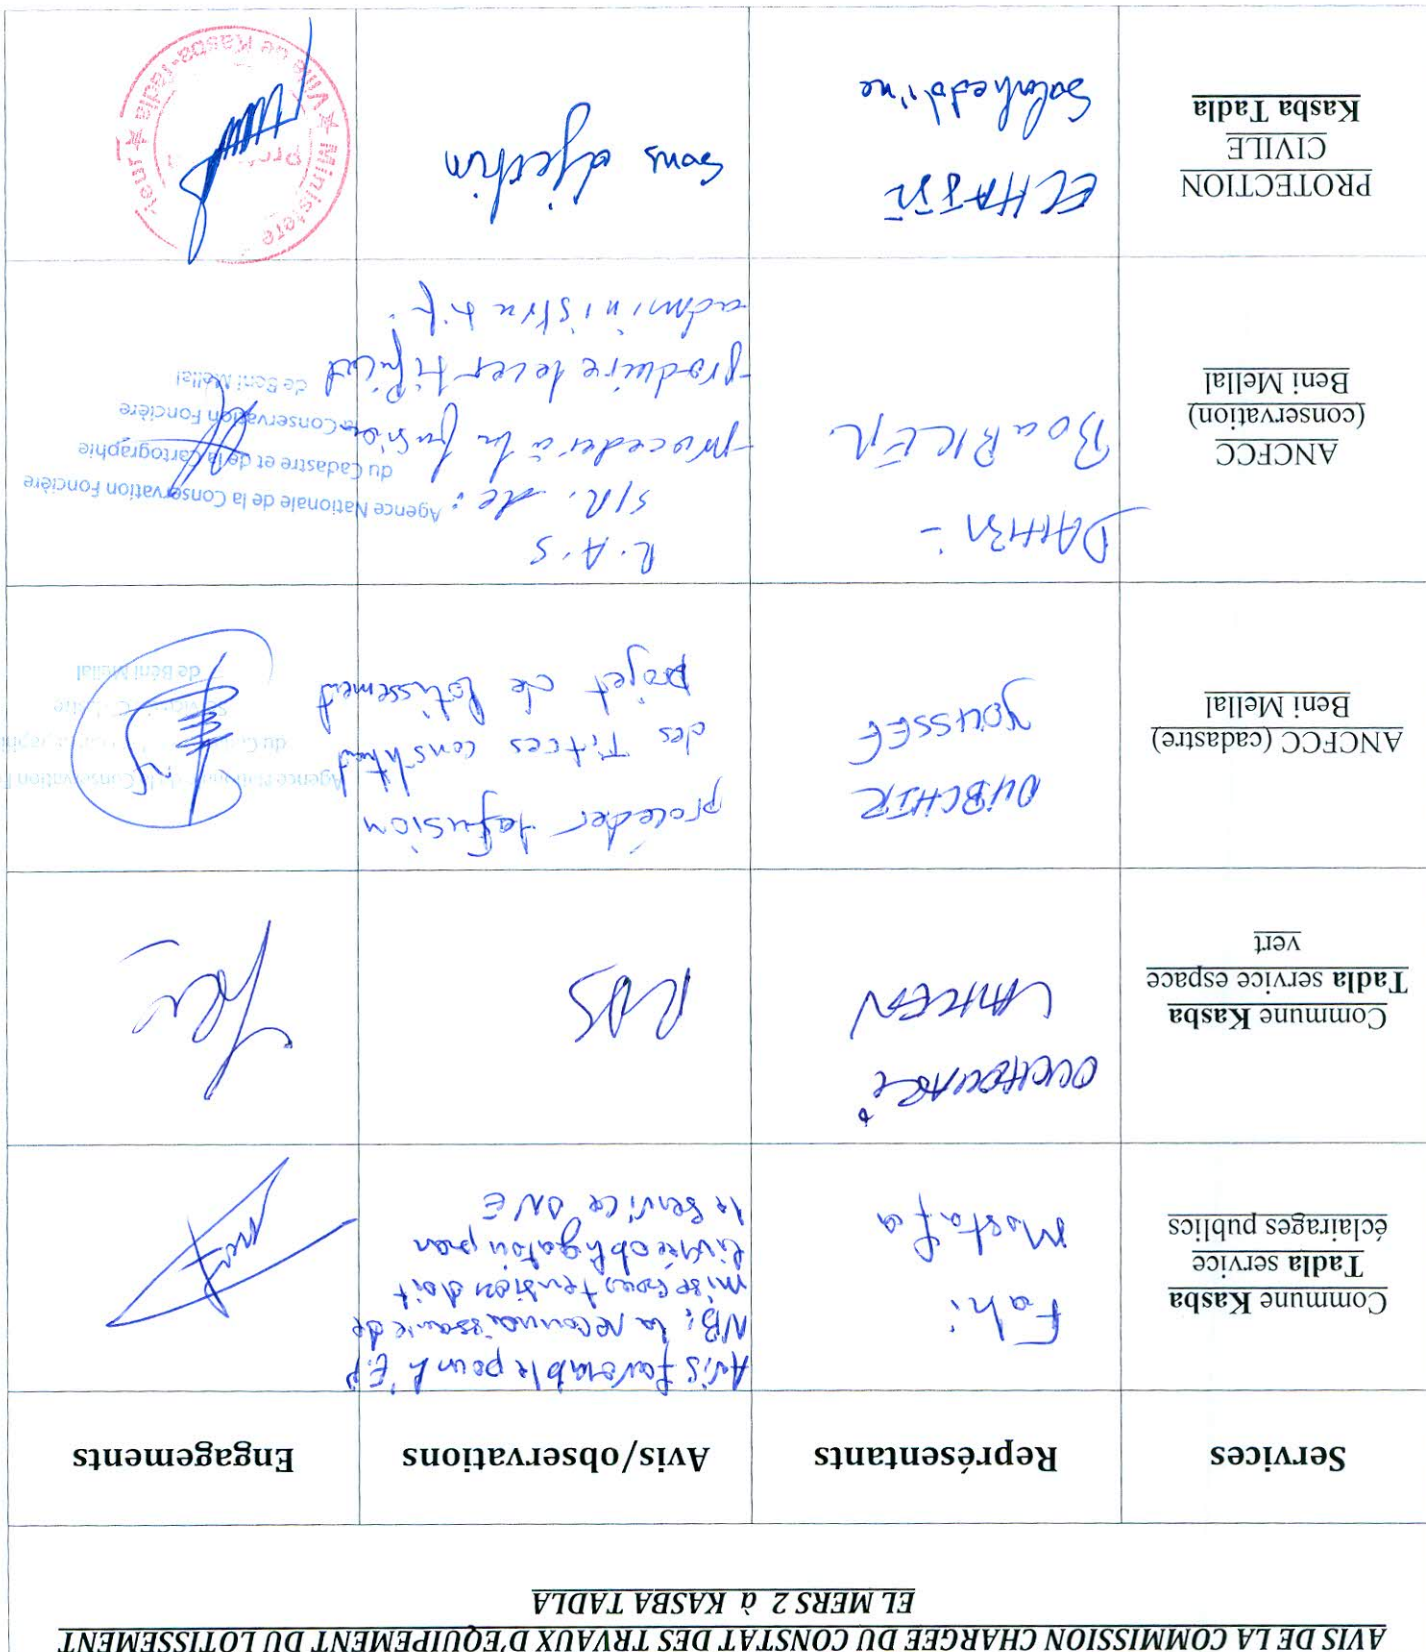 AVIS DE LA COMMISSION CHARGEE DU CONSTAT DES TRVAUX D'EQUIPEMENT DU LOTISSEMENT
EL MERS 2 à KASBA TADLA
Services
Représentants
Avis/observations
Engagements
Commune Kasba
Tadla service
éclairages publics
Fahi
Mostafa
Avis favorable pour l'E.P
NB: la reconnaissance de
mise sous tension doit
livré obligatoir par
le service ONE
Commune Kasba
Tadla service espace
vert
LAHCEN
RAS
ANCFCC (cadastre)
Beni Mellal
OUBCHIR
YOUSSEF
procéder la fusion
des Titres constituant
projet de lotissement
de Béni Mellal
ANCFCC
(conservation)
Beni Mellal
DAHBI -
R.A.S
S/R. de :
-proceder à la fusion
-produire le certificat
administratif.
Agence Nationale de la Conservation Foncière
du Cadastre et de la Cartographie
Conservation Foncière
de Beni Mellal
PROTECTION
CIVILE
Kasba Tadla
Salaheddine
Sans objection
Ministere
Ville de Kasba-Tadla